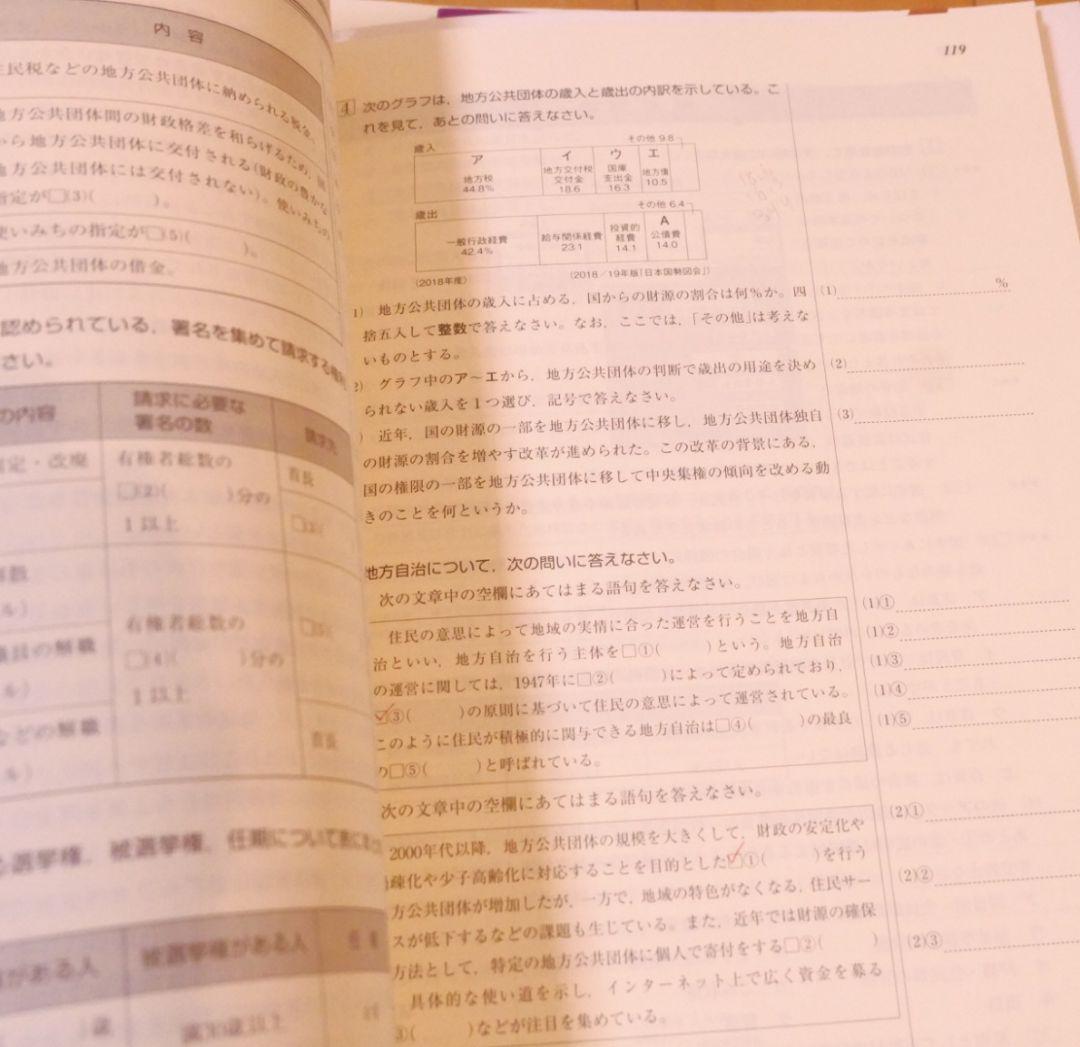 内 容
住民税などの地方公共団体に納められる税金。
地方公共団体間の財政格差を和らげるため、国
から地方公共団体に交付される(財政の豊かな
地方公共団体には交付されない)。使いみちの
指定が□(3)( )。
使いみちの指定が□(5)( )。
地方公共団体の借金。
認められている、署名を集めて請求する権利
さい。
の内容
請求に必要な
署名の数
請求先
制定・改廃
有権者総数の
□(2)( )分の
1以上
首長
解散
ル)
議員の解職
ル)
などの解職
ル)
有権者総数の
□(4)( )分の
1以上
首長
選挙権、被選挙権、任期について
がある人
被選挙権がある人
119
4 次のグラフは、地方公共団体の歳入と歳出の内訳を示している。こ
れを見て、あとの問いに答えなさい。
歳入
その他 9.8
ア
地方税
44.8%
イ
地方交付税
交付金
18.6
ウ
国庫
支出金
16.3
エ
地方債
10.5
歳出
その他 6.4
一般行政経費
42.4%
給与関係経費
23.1
投資的
経費
14.1
A
公債費
14.0
(2018年度)
(2018/19年版「日本国勢図会」)
1) 地方公共団体の歳入に占める、国からの財源の割合は何%か。四
捨五入して整数で答えなさい。なお、ここでは、「その他」は考えな
いものとする。
2) グラフ中のア〜エから、地方公共団体の判断で歳出の用途を決め
られない歳入を1つ選び、記号で答えなさい。
) 近年、国の財源の一部を地方公共団体に移し、地方公共団体独自
の財源の割合を増やす改革が進められた。この改革の背景にある、
国の権限の一部を地方公共団体に移して中央集権の傾向を改める動
きのことを何というか。
(1) %
(2)
(3)
地方自治について、次の問いに答えなさい。
次の文章中の空欄にあてはまる語句を答えなさい。
住民の意思によって地域の実情に合った運営を行うことを地方自
治といい、地方自治を行う主体を□①( )という。地方自治
の運営に関しては、1947年に□②( )によって定められており、
□③( )の原則に基づいて住民の意思によって運営されている。
このように住民が積極的に関与できる地方自治は□④( )の最良
の□⑤( )と呼ばれている。
(1)①
(1)②
(1)③
(1)④
(1)⑤
次の文章中の空欄にあてはまる語句を答えなさい。
2000年代以降、地方公共団体の規模を大きくして、財政の安定化や
過疎化や少子高齢化に対応することを目的とした□①( )を行う
方公共団体が増加したが、一方で、地域の特色がなくなる、住民サー
スが低下するなどの課題も生じている。また、近年では財源の確保
方法として、特定の地方公共団体に個人で寄付をする□②( )
、具体的な使い道を示し、インターネット上で広く資金を募る
③( )などが注目を集めている。
(2)①
(2)②
(2)③